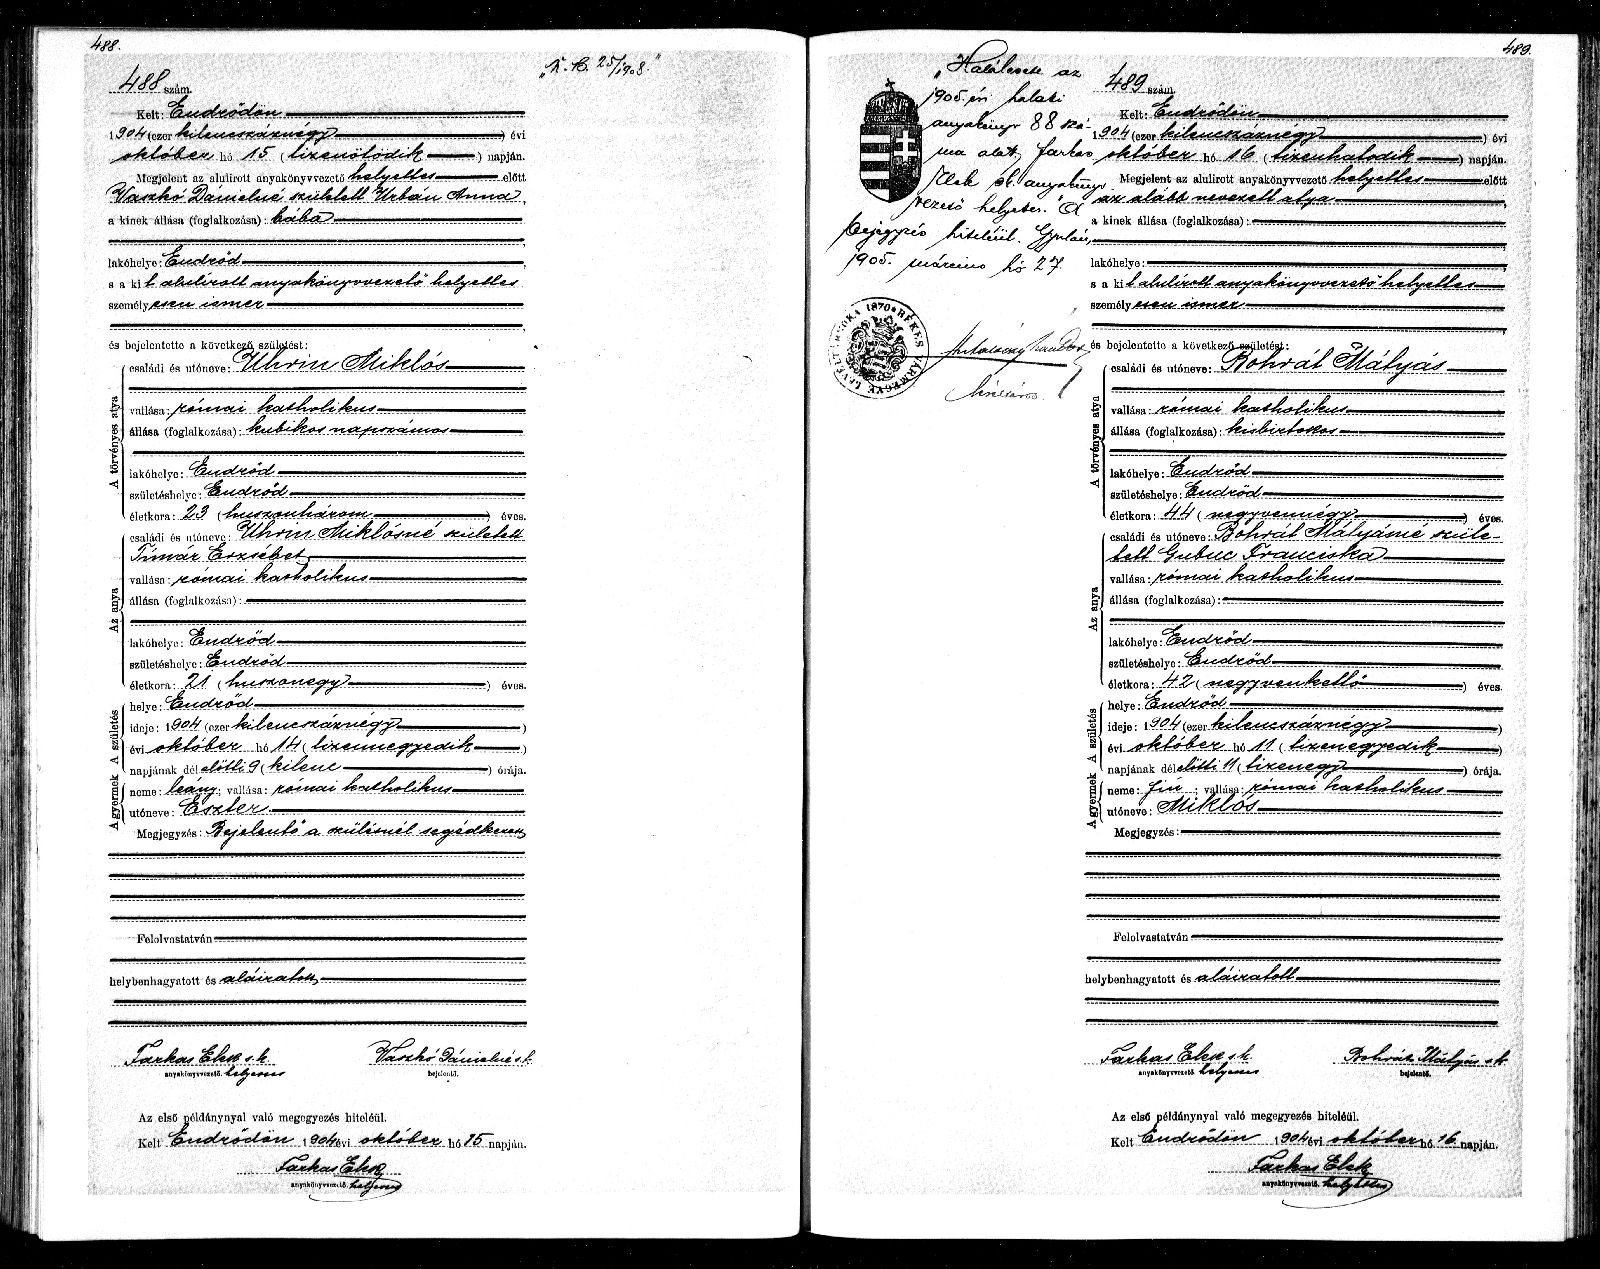 488.
488 szám.
„K. B. 25/1908."
Kelt: Endrődön
1904 (ezer kilencszáznégy) évi
október hó 15 (tizenötödik) napján.
Megjelent az alulirott anyakönyvvezető helyettes előtt
Vaszkó Dánielné született Urbán Anna,
a kinek állása (foglalkozása): bába
lakóhelye: Endrőd
s a kit alulírott anyakönyvvezető helyettes
személyesen ismer
és bejelentette a következő születést:
A törvényes atya
családi és utóneve: Uhrin Miklós
vallása: római katholikus
állása (foglalkozása): kubikos napszámos
lakóhelye: Endrőd
születéshelye: Endrőd
életkora: 23 (huszonhárom) éves.
Az anya
családi és utóneve: Uhrin Miklósné született
Tímár Erzsébet
vallása: római katholikus
állása (foglalkozása):
lakóhelye: Endrőd
születéshelye: Endrőd
életkora: 21 (huszonegy) éves.
A születés
helye: Endrőd
ideje: 1904 (ezer kilencszáznégy)
évi október hó 14 (tizennegyedik)
napjának délelőtti 9 (kilenc) órája.
A gyermek
neme: leány; vallása: római katholikus
utóneve: Eszter
Megjegyzés: Bejelentő a szülésnél segédkezett
Felolvastatván
helybenhagyatott és aláiratott
Farkas Elek s.k. Vaszkó Dánielné s.k.
anyakönyvvezető. helyettes bejelentő.
Az első példánynyal való megegyezés hiteléül.
Kelt Endrődön 1904 évi október hó 15 napján.
Farkas Elek
anyakönyvvezető. helyettes
489.
489 szám.
„Halálesete az
1905. évi halati
anyakönyv 88 szá-
ma alatt, Farkas
Elek sk. anyakönyv
vezető helyettes." A
bejegyzés hiteléül. Gyulán,
1905. március hó 27.
LEVÉLTÁRNOKA 1870 BÉKÉS VÁRMEGYE
Kelt: Endrődön
1904 (ezer kilencszáznégy) évi
október hó 16 (tizenhatodik) napján.
Megjelent az alulirott anyakönyvvezető helyettes előtt
az alább nevezett atya
a kinek állása (foglalkozása):
lakóhelye:
s a kit alulírott anyakönyvvezető helyettes
személyesen ismer
és bejelentette a következő születést:
A törvényes atya
családi és utóneve: Bohrát Mátyás
vallása: római katholikus
állása (foglalkozása): kisbirtokos
lakóhelye: Endrőd
születéshelye: Endrőd
életkora: 44 (negyvennégy) éves.
Az anya
családi és utóneve: Bohrát Mátyásné szüle-
tett Gubuc Franciska
vallása: római katholikus
állása (foglalkozása):
lakóhelye: Endrőd
születéshelye: Endrőd
életkora: 42 (negyvenkettő) éves.
A születés
helye: Endrőd
ideje: 1904 (ezer kilencszáznégy)
évi október hó 11 (tizenegyedik)
napjának délelőtti 11 (tizenegy) órája.
A gyermek
neme: fiú; vallása: római katholikus
utóneve: Miklós
Megjegyzés:
Felolvastatván
helybenhagyatott és aláiratott
Farkas Elek s.k. Bohrát Mátyás sk.
anyakönyvvezető. helyettes bejelentő.
Az első példánynyal való megegyezés hiteléül.
Kelt Endrődön 1904 évi október hó 16 napján.
Farkas Elek
anyakönyvvezető. helyettes